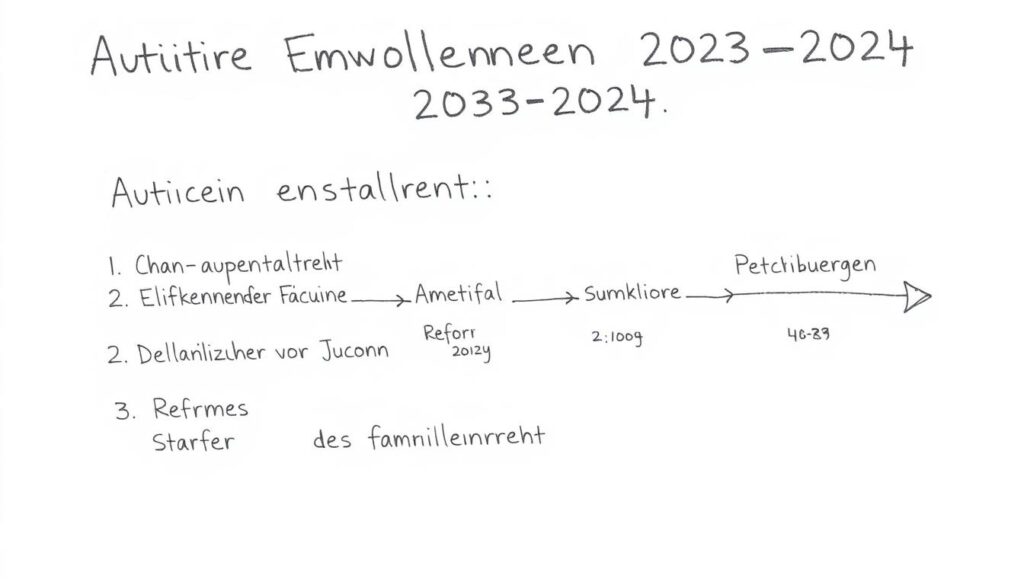 Autiitire Emwollenneen 2023–2024
2033-2024.
Autiicein enstallrent::
1. Chan-aupentaltreht
Petctibuergen
2. Elifkennender Fácuine → Ametifal → Sumkliore →
Reforr 2:100g 40-89
2012y
2. Dellanlizuher vor Juconn
3. Refrmes
Starfer des famnilleinrreht